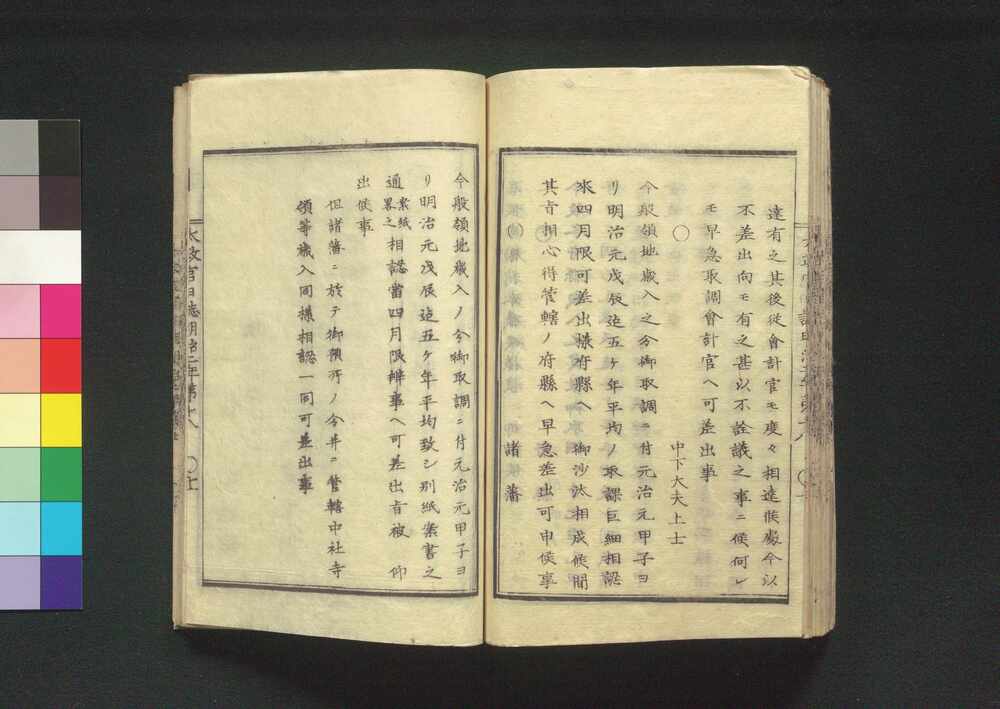 達有之其後從會計官モ度々相達候處今以
不差出向モ有之甚以不詮議之事ニ候何レ
モ早急取調會計官ヘ可差出事
○
中下大夫上士
今般領地歳入之分御取調ニ付元治元甲子ヨ
リ明治元戊辰迄五ケ年平均ノ取課巨細相認
來四月限可差出樣府縣ヘ御沙汰相成候間
其旨相心得管轄ノ府縣ヘ早急差出可申候事
○
諸藩
今般領地歳入ノ分御取調ニ付元治元甲子ヨ
リ明治元戊辰迄五ケ年平均致シ別紙案書之
通案紙畧之相認當四月限辨事ヘ可差出旨被 仰
出候事
但諸藩ニ於テ御預所ノ分并ニ管轄中社寺
領等歳入同樣相認一同可差出事
太政官日誌明治二年第十八
○七